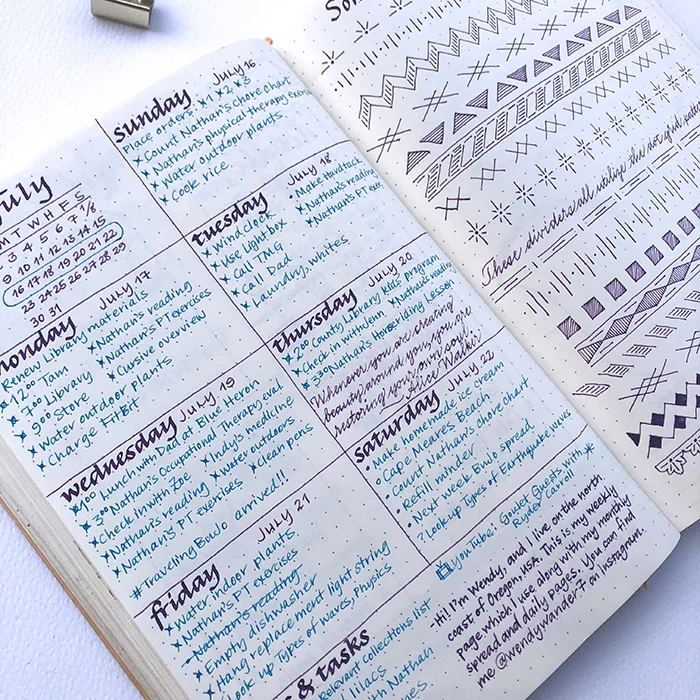 July
M T W H F S
3 4 5 6 7 1/8
9 10 11 12 13 14 15
16 17 18 19 20 21 22
23 24 25 26 27 28 29
30 31
sunday July 16
Place orders: x1 x2 x3
Count Nathan's chore chart
Nathan's physical therapy
Water outdoor plants
Cook rice
monday July 17
Renew Library materials
12:00 Tam
7:00 Library
9:00 Store
Water outdoor plants
Charge FitBit
Nathan's reading
Nathan's PT exercises
Cursive overview
tuesday July 18
Wind clock
Use Lightbox
Call TMG
Call Dad
Laundry, whites
Make Hardtack
Nathan's reading
Nathan's PT
wednesday July 19
Lunch with Dad at Blue Heron
3:00 Nathan's Occupational Therapy eval
Check in with Zoe
Indy's medicine
Nathan's reading
Water outdoors
Nathan's PT exercises
Clean pens
# Traveling BuJo arrived!!
thursday July 20
2:00 County Library Kids program
Check in with Jenn
Nathan's reading
3:00 Nathan's Riding Lesson
Whenever you are creating
beauty around you, you are
restoring your own soul.
Alice Walker
friday July 21
Water indoor plants
Nathan's PT exercises
Nathan's reading
Empty dishwasher
Hang replace merit light string
Look up Types of waves, Physics
saturday July 22
Make homemade ice cream
Cape Meares Beach
Count Nathan's chore chart
Refill minder
Next week BuJo spread
? Look up Types of Earthquake waves
YouTube: Goulet Guests with
Ryder Carroll
& tasks
Relevant collections list
lilacs
with Nathan
Hi! I'm Wendy, and I live on the north
coast of Oregon, USA. This is my weekly
page which I use along with my monthly
spread and daily pages. You can find
me @wendywander7 on Instagram.
These dividers all utilize the dot grid